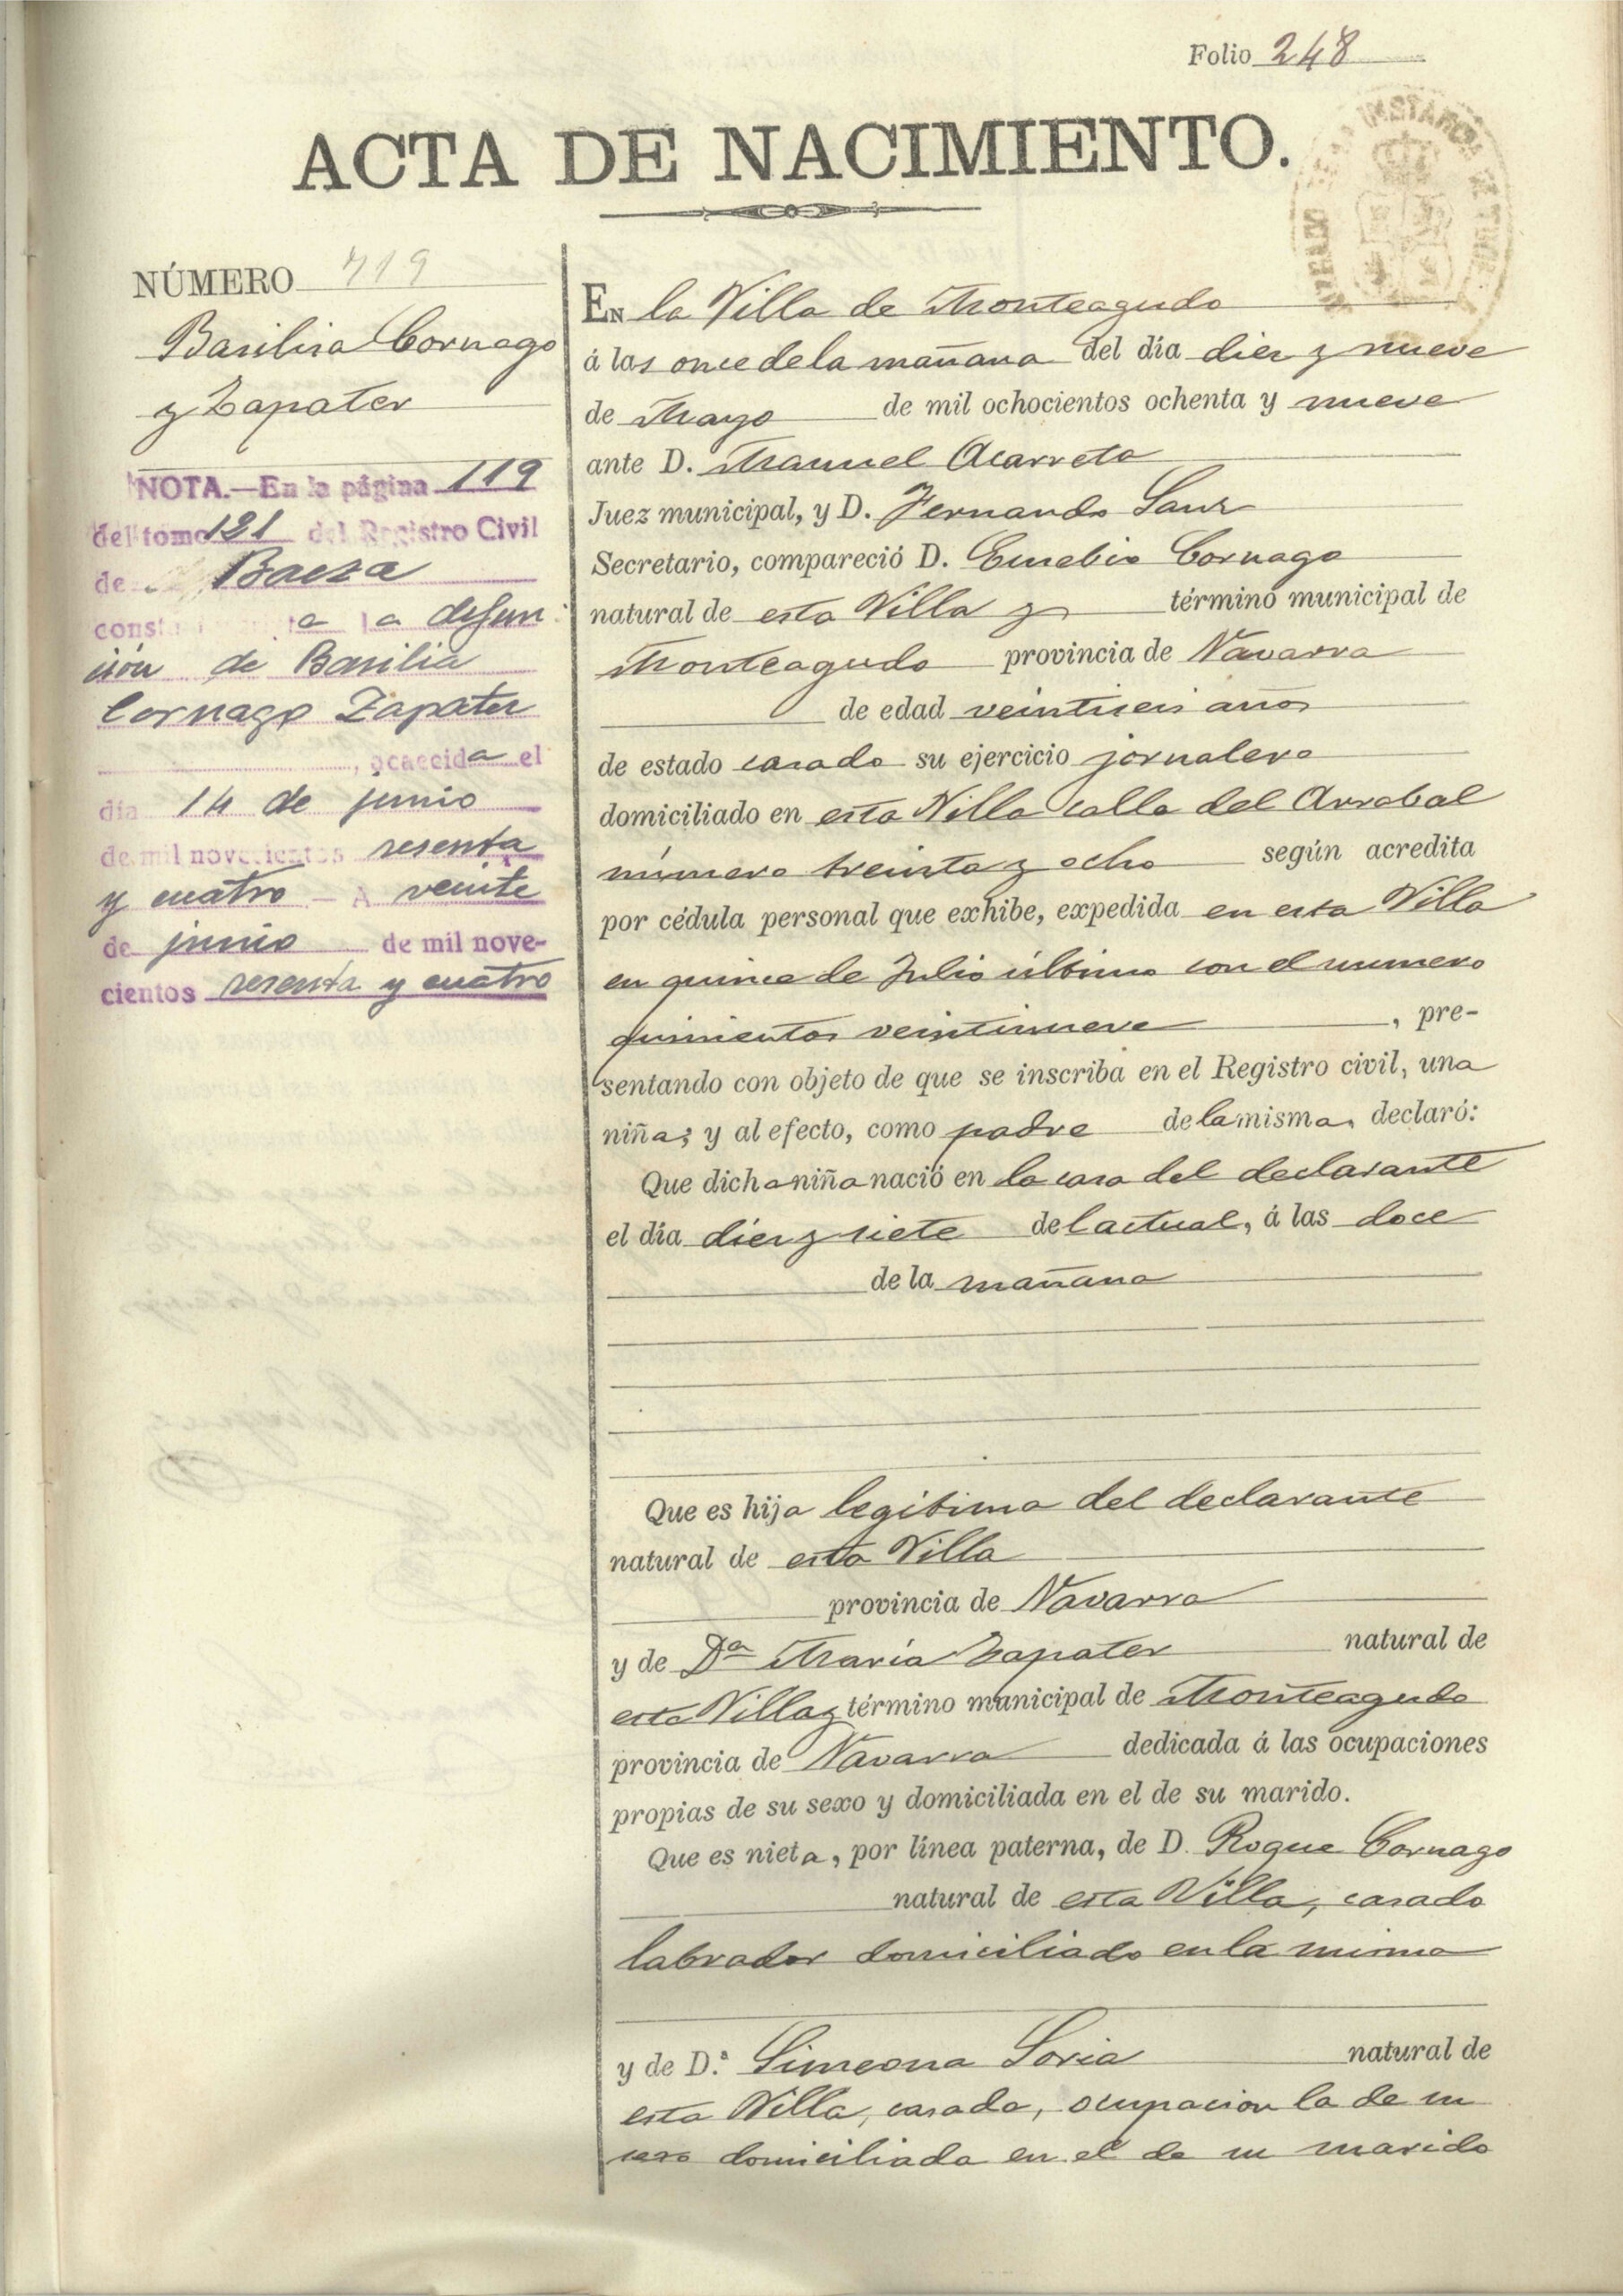 Folio 248
ACTA DE NACIMIENTO.
NÚMERO 719
Basilisa Cornago
y Zapater
NOTA.—En la página 119
del tomo 121 del Registro Civil
de Baeza
consta la defun
ción de Basilia
Cornago Zapater
, acaecida el
día 14 de junio
de mil novecientos sesenta
y cuatro — A veinte
de junio de mil nove-
cientos sesenta y cuatro
EN la Villa de Monteagudo
á las once de la mañana del día diez y nueve
de Mayo de mil ochocientos ochenta y nueve
ante D. Manuel Acarreta
Juez municipal, y D. Fernando Sanz
Secretario, compareció D. Eusebio Cornago
natural de esta Villa y término municipal de
Monteagudo provincia de Navarra
de edad veintiseis años
de estado casado su ejercicio jornalero
domiciliado en esta Villa calle del Arrabal
número treinta y ocho según acredita
por cédula personal que exhibe, expedida en esta Villa
en quince de Julio último con el numero
quinientos veintinueve, pre-
sentando con objeto de que se inscriba en el Registro civil, una
niña; y al efecto, como padre de la misma, declaró:
Que dicha niña nació en la casa del declarante
el día diez y siete del actual, á las doce
de la mañana
Que es hija legítima del declarante
natural de esta Villa
provincia de Navarra
y de Dª María Zapater natural de
esta Villa y término municipal de Monteagudo
provincia de Navarra dedicada á las ocupaciones
propias de su sexo y domiciliada en el de su marido.
Que es nieta, por línea paterna, de D. Roque Cornago
natural de esta Villa, casado
labrador domiciliado en la misma
y de D.ª Simeona Soria natural de
esta Villa, casada, ocupacion la de su
sexo domiciliada en el de su marido